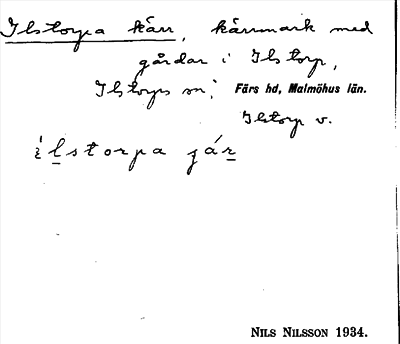 Ilstorpa kärr, kärrmark med
gårdar i Ilstorp,
Ilstorps sn; Färs hd, Malmöhus län.
Ilstorp v.
ìlstorpa jár
NILS NILSSON 1934.